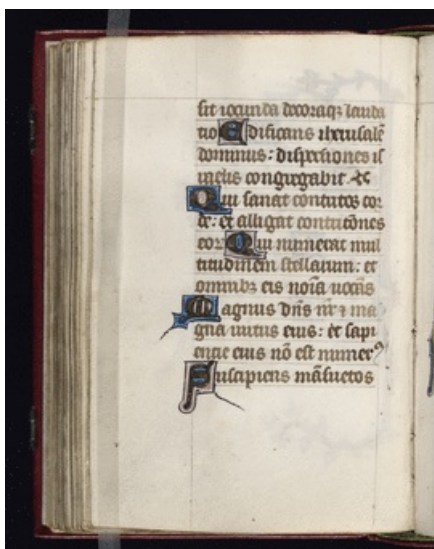 sit iocunda decoraq; lauda
tio Edificans iherusalē
dominus: dispersiones is
rahelis congregabit
Qui sanat contritos cor
de: et alligat contritōnes
eor Qui numerat mul
titudinem stellarum: et
omnibȝ eis noīa uocās
Magnus dn̄s nr̄ ⁊ ma
gna uirtus eius: et sapi
entie eius nō est numerꝰ
Suscipiens māsuetos